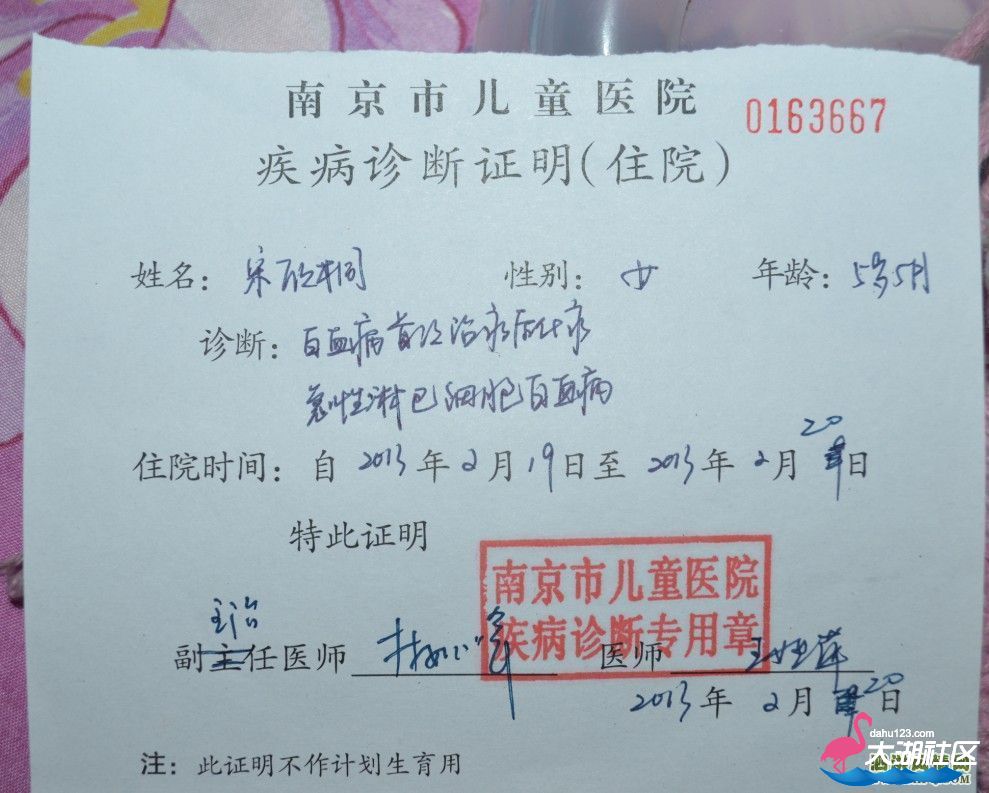 南京市儿童医院
0163667
疾病诊断证明(住院)
姓名: 宋 性别: 女 年龄: 5岁5月
诊断: 白血病
急性淋巴细胞白血病
住院时间: 自 2013 年 2 月 19 日至 2013 年 2 月 20 日
特此证明
南京市儿童医院
疾病诊断专用章
主治
副主任医师 医师
2013 年 2 月 20 日
注: 此证明不作计划生育用
dahu123.com
大湖社区